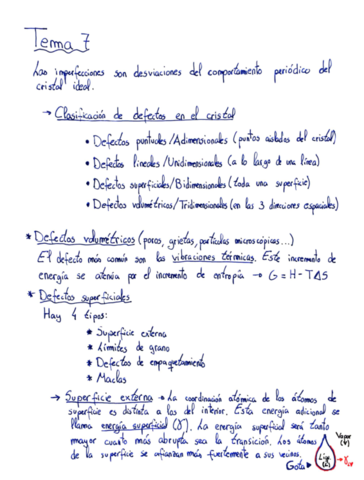 Tema 7
Las imperfecciones son desviaciones del comportamiento periódico del
cristal ideal.
→ Clasificación de defectos en el cristal
• Defectos puntuales/Adimensionales (puntos aislados del cristal)
• Defectos lineales/Unidimensionales (a lo largo de una línea)
• Defectos superficiales/Bidimensionales (toda una superficie)
• Defectos volumétricos/Tridimensionales (en las 3 direcciones espaciales)
* Defectos volumétricos (poros, grietas, partículas microscópicas...)
El defecto más común son las vibraciones térmicas. Este incremento de
energía se atenúa por el incremento de entropía → G = H - TΔS
* Defectos superficiales
Hay 4 tipos:
* Superficie externa
* Límites de grano
* Defectos de empaquetamiento
* Maclas
→ Superficie externa → La coordinación atómica de los átomos de
superficie es distinta a los del interior. Esta energía adicional se
llama energía superficial (γ). La energía superficial será tanto
mayor cuanto más abrupta sea la transición. Los átomos
de la superficie se afianzan más fuertemente a sus vecinos.
Vapor
(V)
Líq.
(L)
Gota